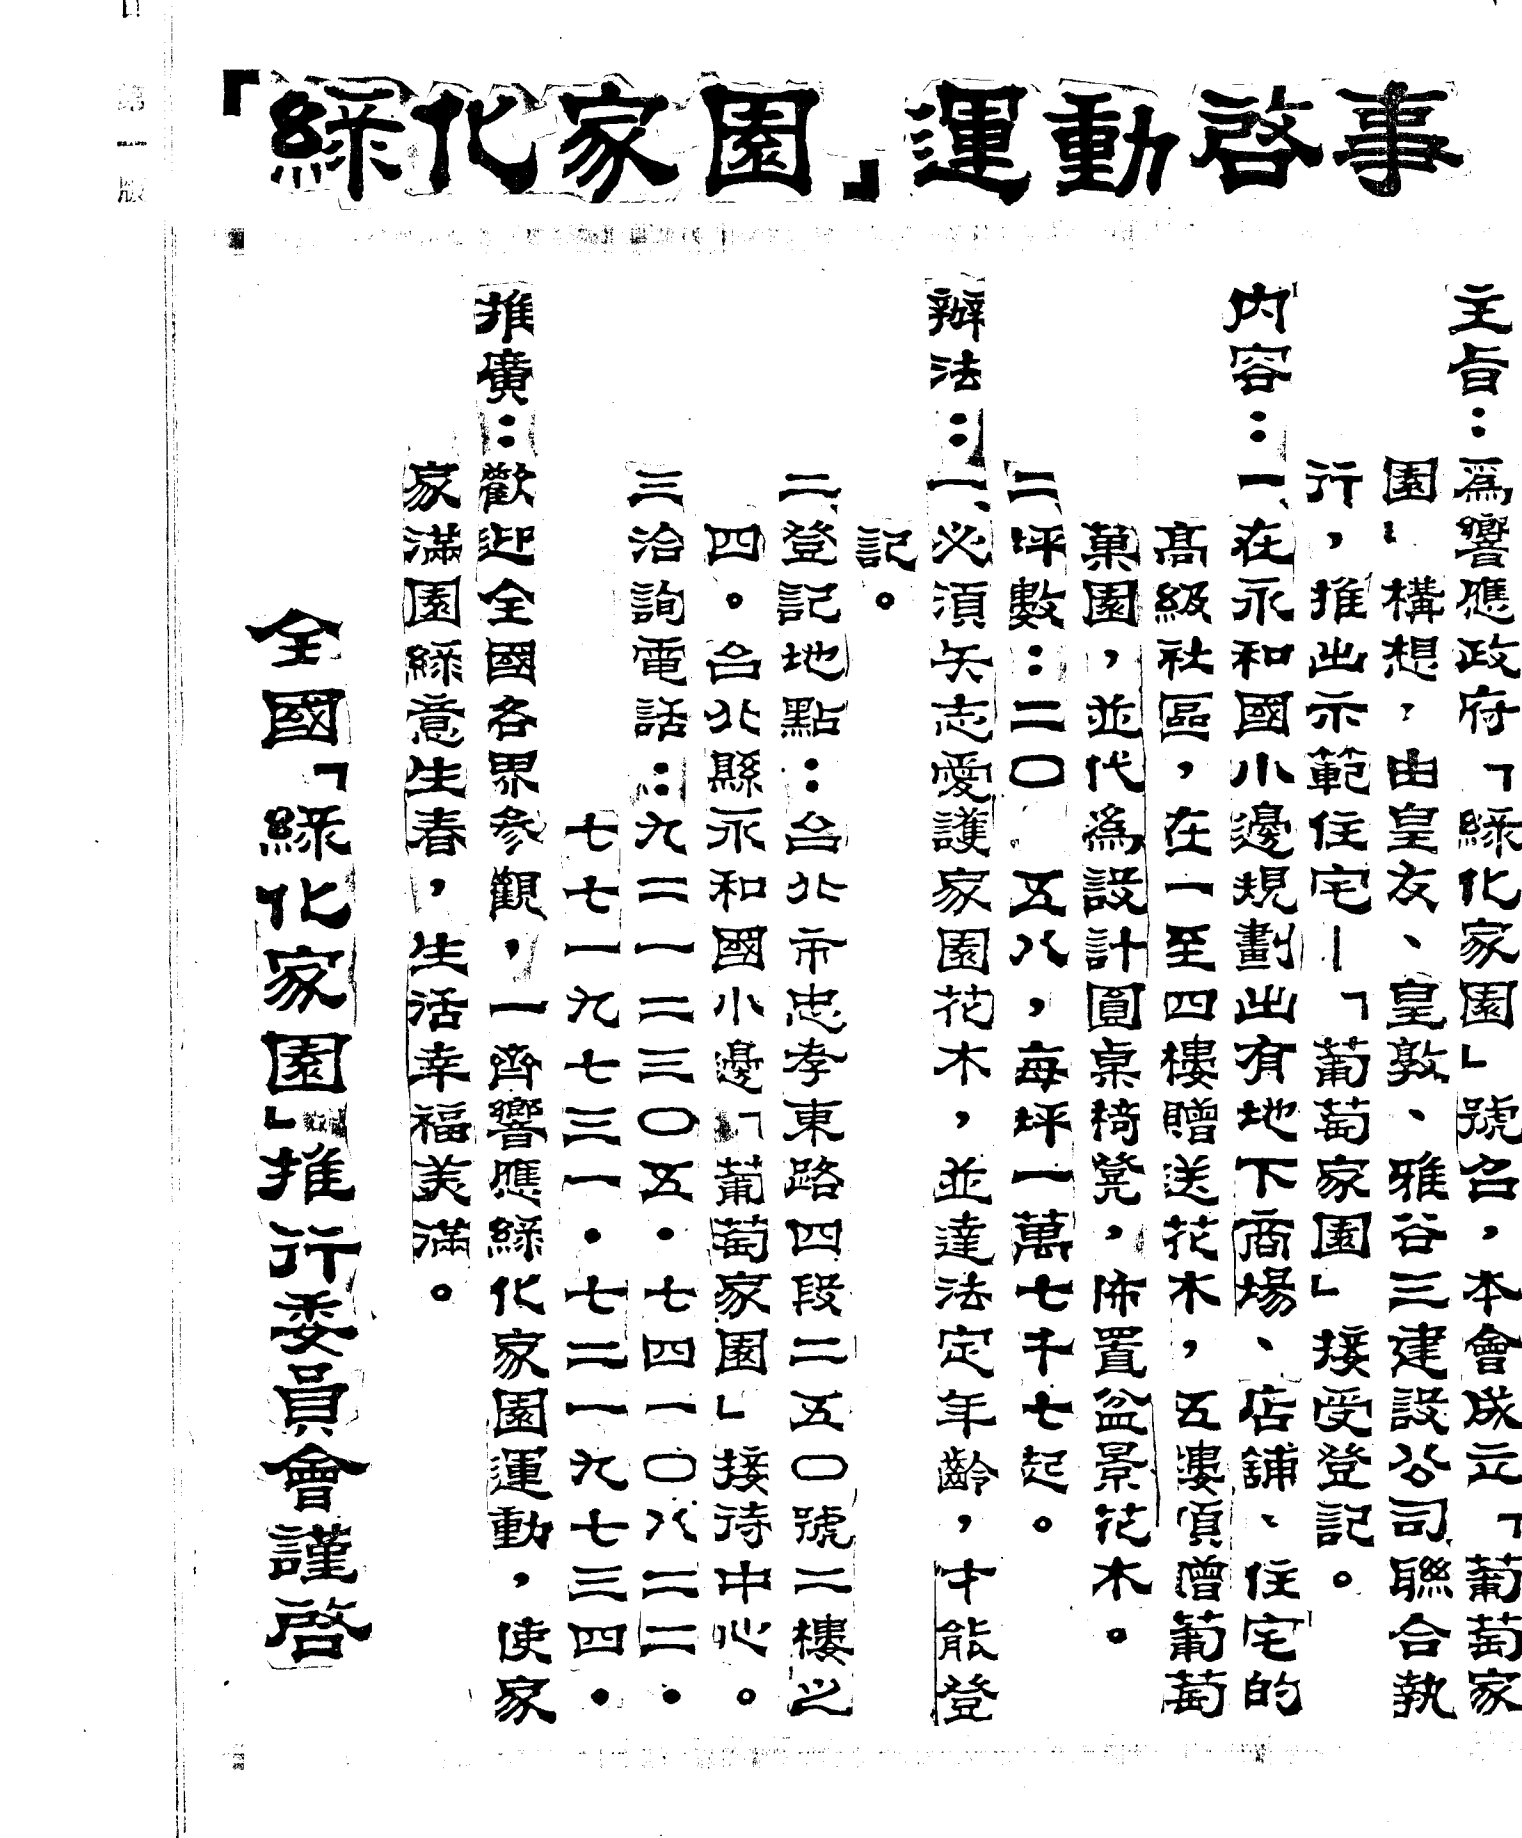 「綠化家園」運動啓事
主旨：爲響應政府「綠化家園」號召，本會成立「葡萄家
園」構想，由皇友、皇敦、雅谷三建設公司聯合執
行，推出示範住宅—「葡萄家園」接受登記。
內容：一、在永和國小邊規劃出有地下商場、店舖、住宅的
高級社區，在一至四樓贈送花木，五樓頂贈葡萄
菓園，並代爲設計圓桌椅凳，佈置盆景花木。
二坪數：二〇 五八，每坪一萬七千七起。
辦法：一、必須矢志愛護家園花木，並達法定年齡，才能登
記。
二、登記地點：台北市忠孝東路四段二五〇號二樓之
四。台北縣永和國小邊「葡萄家園」接待中心。
三洽詢電話：九二一二三〇五・七四一〇八二二・
七七一九七三一・七二一九七三四・
推廣：歡迎全國各界參觀，一齊響應綠化家園運動，使家
家滿園綠意生春，生活幸福美滿。
全國「綠化家園」推行委員會謹啓
第一版